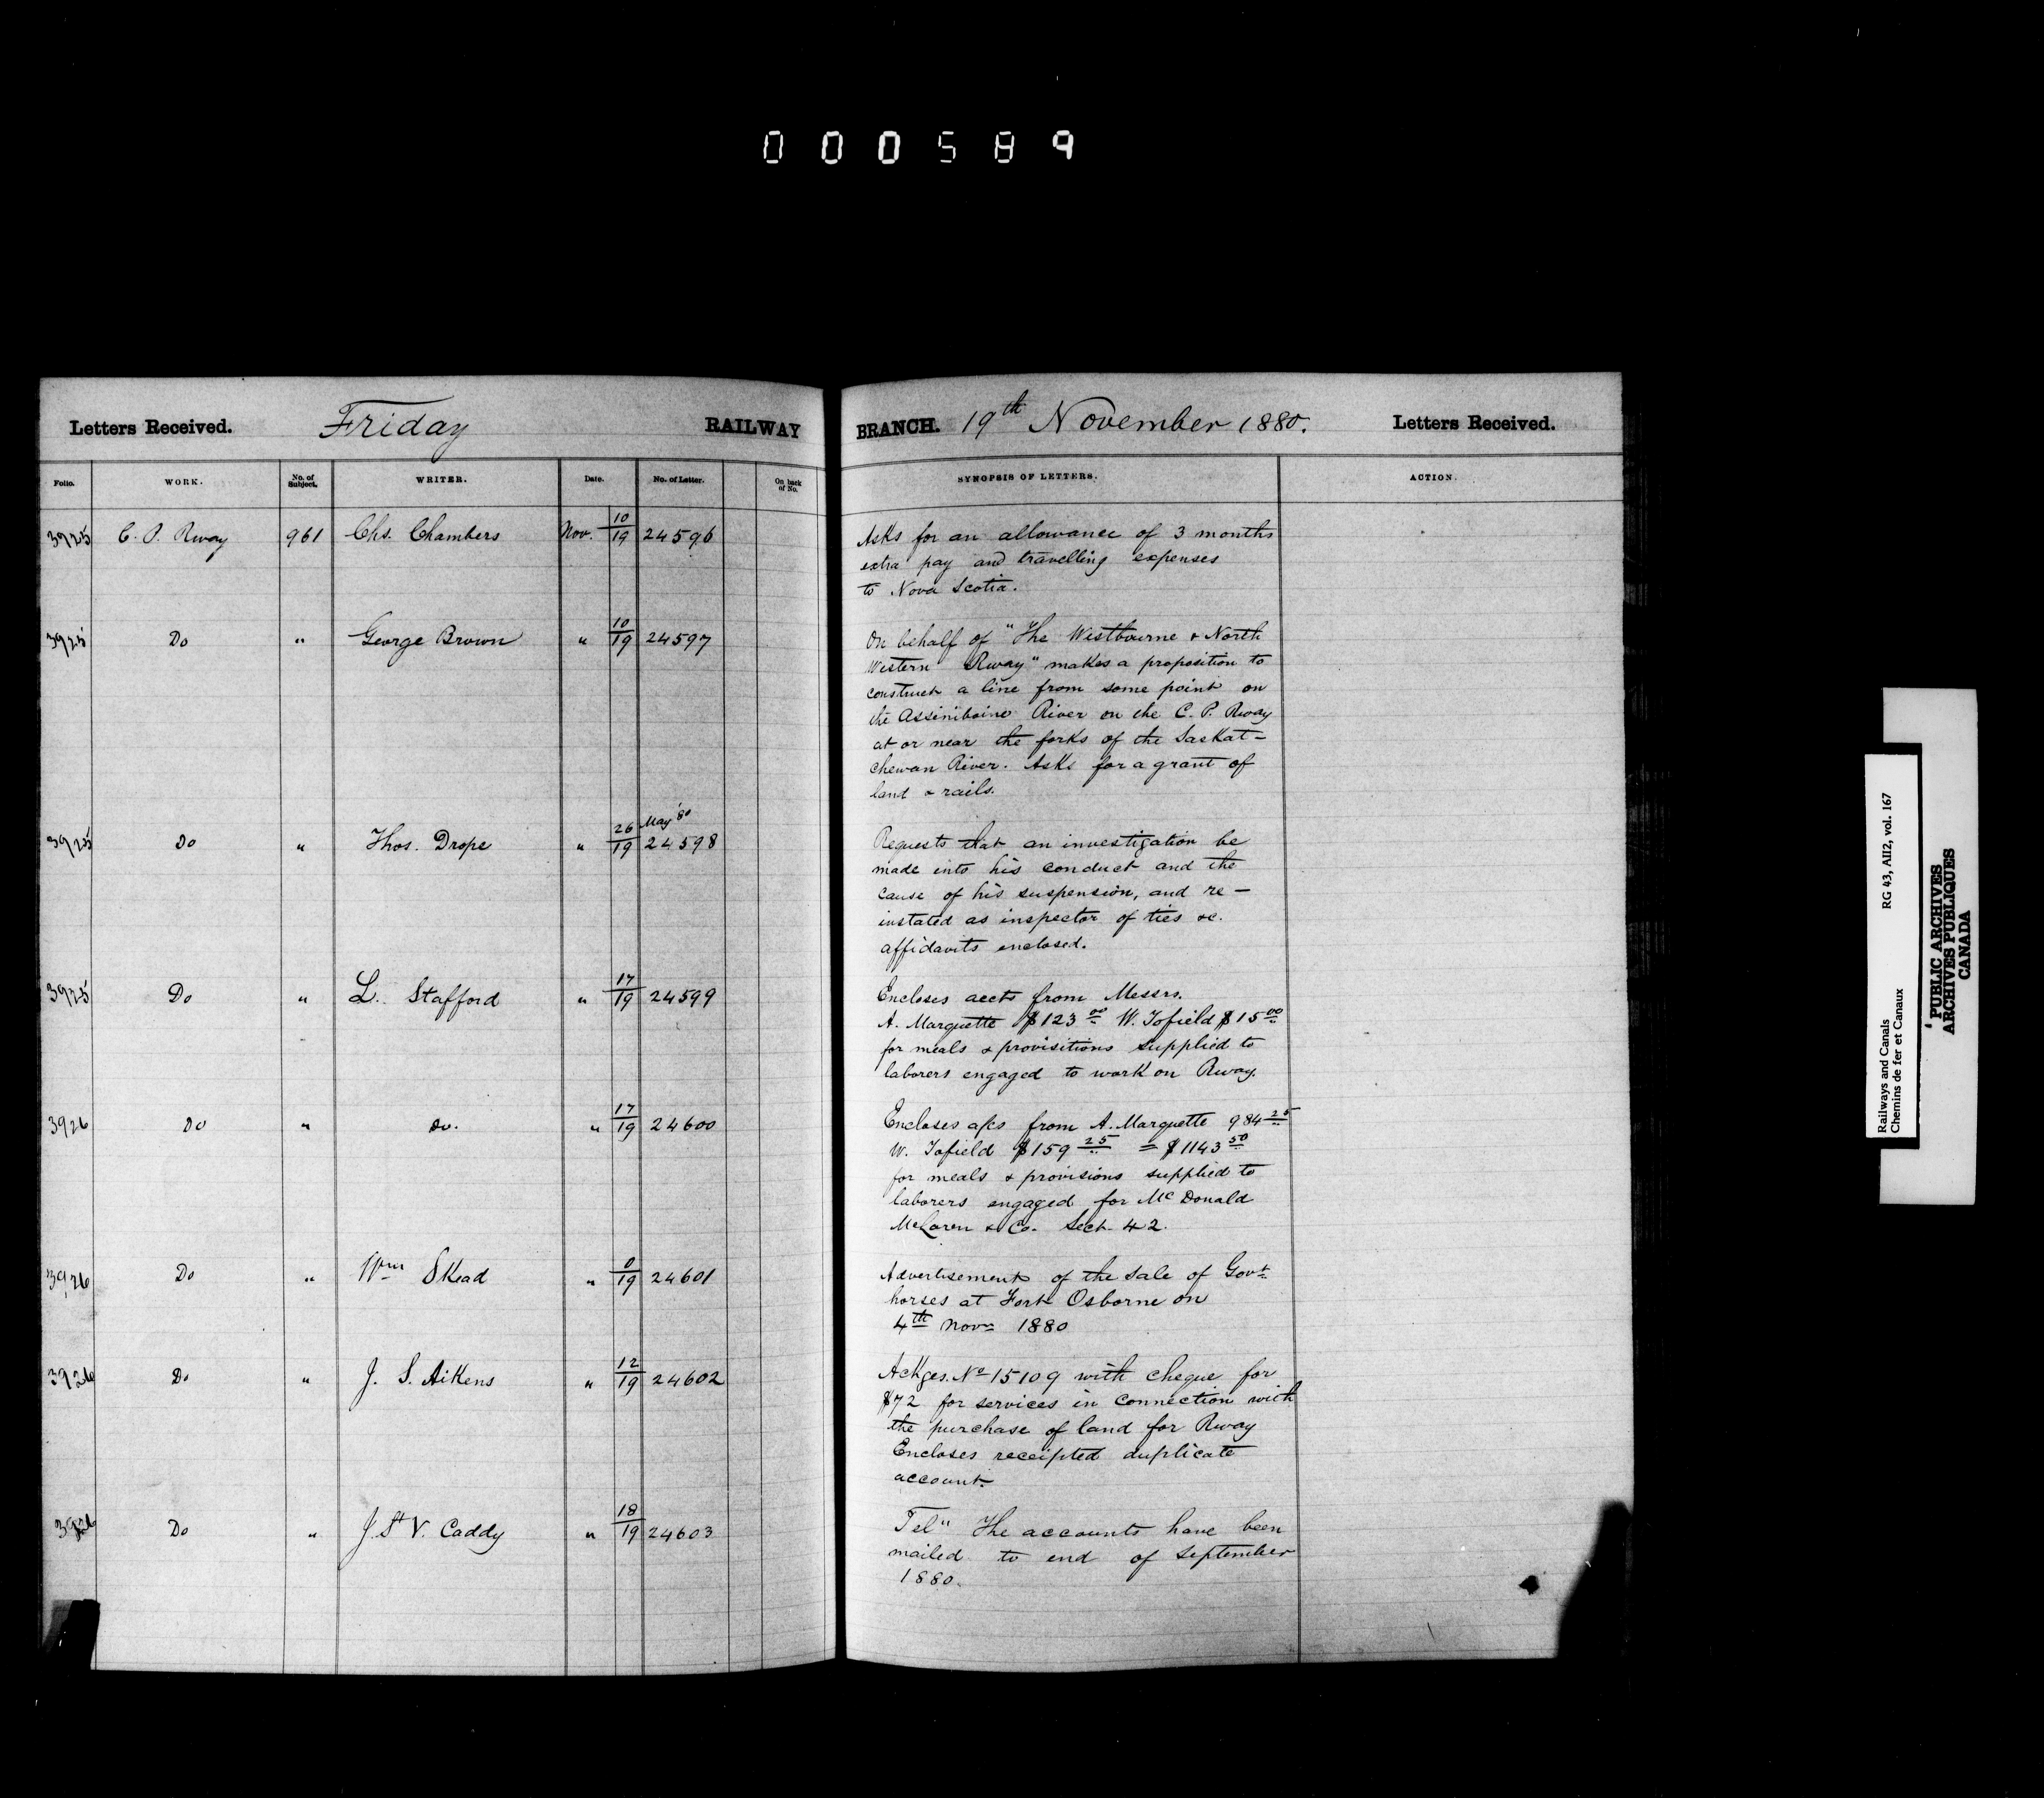 000589
Letters Received. Friday RAILWAY BRANCH. 19th November 1880. Letters Received.
Folio. WORK. No. of Subject. WRITER. Date. No. of Letter. On back of No. SYNOPSIS OF LETTERS. ACTION.
3925 C. P. Rway 961 Chs. Chambers Nov. 10/19 24596 Asks for an allowance of 3 months
extra pay and travelling expenses
to Nova Scotia.
3925 Do " George Brown " 10/19 24597 On behalf of "The Westbourne & North
Western Rway" makes a proposition to
construct a line from some point on
the Assiniboine River on the C. P. Rway
at or near the forks of the Saskat-
chewan River. Asks for a grant of
land & rails.
3925 Do " Thos. Drope " 26 May '80/19 24598 Requests that an investigation be
made into his conduct and the
cause of his suspension, and re-
instated as inspector of ties &c.
affidavits enclosed.
3925 Do " L. Stafford " 17/19 24599 Encloses accts from Messrs.
A. Marquette $123 00 W. Tofield $15 00
for meals & provisitions supplied to
laborers engaged to work on Rway.
3926 Do " do. " 17/19 24600 Encloses a/cs from A. Marquette 984 25
W. Tofield $159 25 = $1143 50
for meals & provisions supplied to
laborers engaged for McDonald
McLaren & Co. Sect. 42.
3926 Do " Wm Skead " 0/19 24601 Advertisement of the sale of Govt
horses at Fort Osborne on
4th Novr 1880
3926 Do " J. S. Aikens " 12/19 24602 Ackges. No 15109 with cheque for
$72 for services in connection with
the purchase of land for Rway
Encloses receipted duplicate
account.
3926 Do " J. St V. Caddy " 18/19 24603 Tel" The accounts have been
mailed to end of September
1880.
Railways and Canals RG 43, AII2, vol. 167
Chemins de fer et Canaux
PUBLIC ARCHIVES
ARCHIVES PUBLIQUES
CANADA